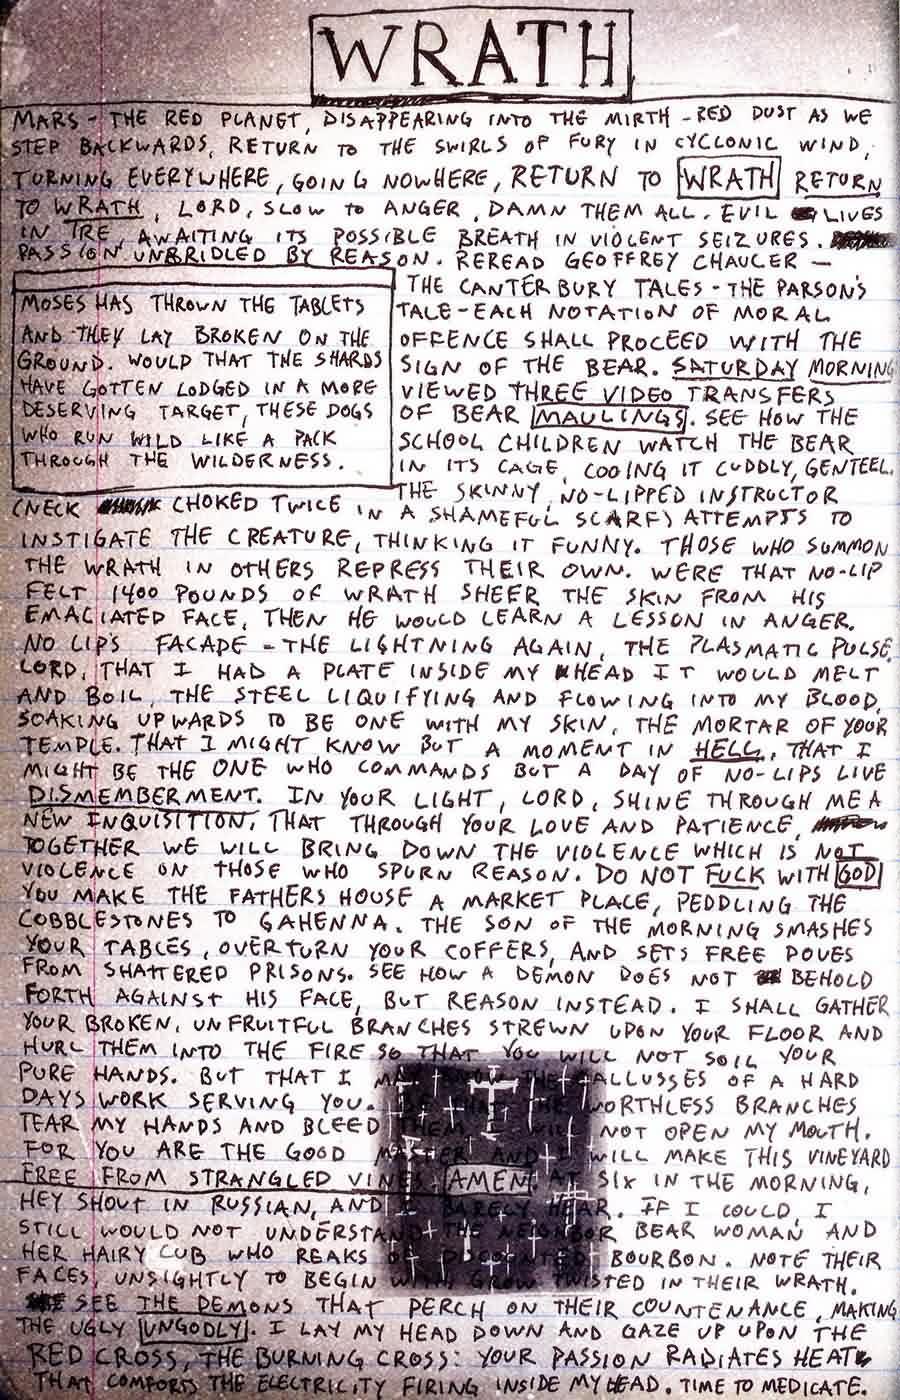 WRATH
MARS - THE RED PLANET, DISAPPEARING INTO THE MIRTH - RED DUST AS WE
STEP BACKWARDS, RETURN TO THE SWIRLS OF FURY IN CYCLONIC WIND,
TURNING EVERYWHERE, GOING NOWHERE, RETURN TO WRATH RETURN
TO WRATH, LORD, SLOW TO ANGER, DAMN THEM ALL. EVIL LIVES
IN IRE AWAITING ITS POSSIBLE BREATH IN VIOLENT SEIZURES.
PASSION UNBRIDLED BY REASON. REREAD GEOFFREY CHAUCER -
THE CANTERBURY TALES - THE PARSON'S
TALE - EACH NOTATION OF MORAL
OFFENCE SHALL PROCEED WITH THE
SIGN OF THE BEAR. SATURDAY MORNING
VIEWED THREE VIDEO TRANSFERS
OF BEAR MAULINGS. SEE HOW THE
SCHOOL CHILDREN WATCH THE BEAR
IN ITS CAGE, COOING IT CUDDLY, GENTEEL.
THE SKINNY, NO-LIPPED INSTRUCTOR
MOSES HAS THROWN THE TABLETS
AND THEY LAY BROKEN ON THE
GROUND. WOULD THAT THE SHARDS
HAVE GOTTEN LODGED IN A MORE
DESERVING TARGET, THESE DOGS
WHO RUN WILD LIKE A PACK
THROUGH THE WILDERNESS.
(NECK CHOKED TWICE IN A SHAMEFUL SCARF) ATTEMPTS TO
INSTIGATE THE CREATURE, THINKING IT FUNNY. THOSE WHO SUMMON
THE WRATH IN OTHERS REPRESS THEIR OWN. WERE THAT NO-LIP
FELT 1400 POUNDS OF WRATH SHEER THE SKIN FROM HIS
EMACIATED FACE, THEN HE WOULD LEARN A LESSON IN ANGER.
NO LIPS FACADE - THE LIGHTNING AGAIN, THE PLASMATIC PULSE.
LORD, THAT I HAD A PLATE INSIDE MY HEAD IT WOULD MELT
AND BOIL, THE STEEL LIQUIFYING AND FLOWING INTO MY BLOOD,
SOAKING UPWARDS TO BE ONE WITH MY SKIN, THE MORTAR OF YOUR
TEMPLE. THAT I MIGHT KNOW BUT A MOMENT IN HELL, THAT I
MIGHT BE THE ONE WHO COMMANDS BUT A DAY OF NO-LIPS LIVE
DISMEMBERMENT. IN YOUR LIGHT, LORD, SHINE THROUGH ME A
NEW INQUISITION, THAT THROUGH YOUR LOVE AND PATIENCE,
TOGETHER WE WILL BRING DOWN THE VIOLENCE WHICH IS NOT
VIOLENCE ON THOSE WHO SPURN REASON. DO NOT FUCK WITH GOD
YOU MAKE THE FATHERS HOUSE A MARKET PLACE, PEDDLING THE
COBBLESTONES TO GAHENNA. THE SON OF THE MORNING SMASHES
YOUR TABLES, OVERTURN YOUR COFFERS, AND SETS FREE DOVES
FROM SHATTERED PRISONS. SEE HOW A DEMON DOES NOT BEHOLD
FORTH AGAINST HIS FACE, BUT REASON INSTEAD. I SHALL GATHER
YOUR BROKEN, UNFRUITFUL BRANCHES STREWN UPON YOUR FLOOR AND
HURL THEM INTO THE FIRE SO THAT YOU WILL NOT SOIL YOUR
PURE HANDS. BUT THAT I MAY KNOW THE CALLUSSES OF A HARD
DAYS WORK SERVING YOU. THE WORTHLESS BRANCHES
TEAR MY HANDS AND BLEED THEM I WILL NOT OPEN MY MOUTH.
FOR YOU ARE THE GOOD MASTER AND I WILL MAKE THIS VINEYARD
FREE FROM STRANGLED VINES. AMEN. AT SIX IN THE MORNING,
HEY SHOUT IN RUSSIAN, AND I BARELY HEAR. IF I COULD, I
STILL WOULD NOT UNDERSTAND THE NEIGHBOR BEAR WOMAN AND
HER HAIRY CUB WHO REAKS OF DISCOUNTED BOURBON. NOTE THEIR
FACES, UNSIGHTLY TO BEGIN WITH, GROW TWISTED IN THEIR WRATH.
SEE THE DEMONS THAT PERCH ON THEIR COUNTENANCE, MAKING
THE UGLY UNGODLY. I LAY MY HEAD DOWN AND GAZE UP UPON THE
RED CROSS, THE BURNING CROSS: YOUR PASSION RADIATES HEAT
THAT COMFORTS THE ELECTRICITY FIRING INSIDE MY HEAD. TIME TO MEDICATE.